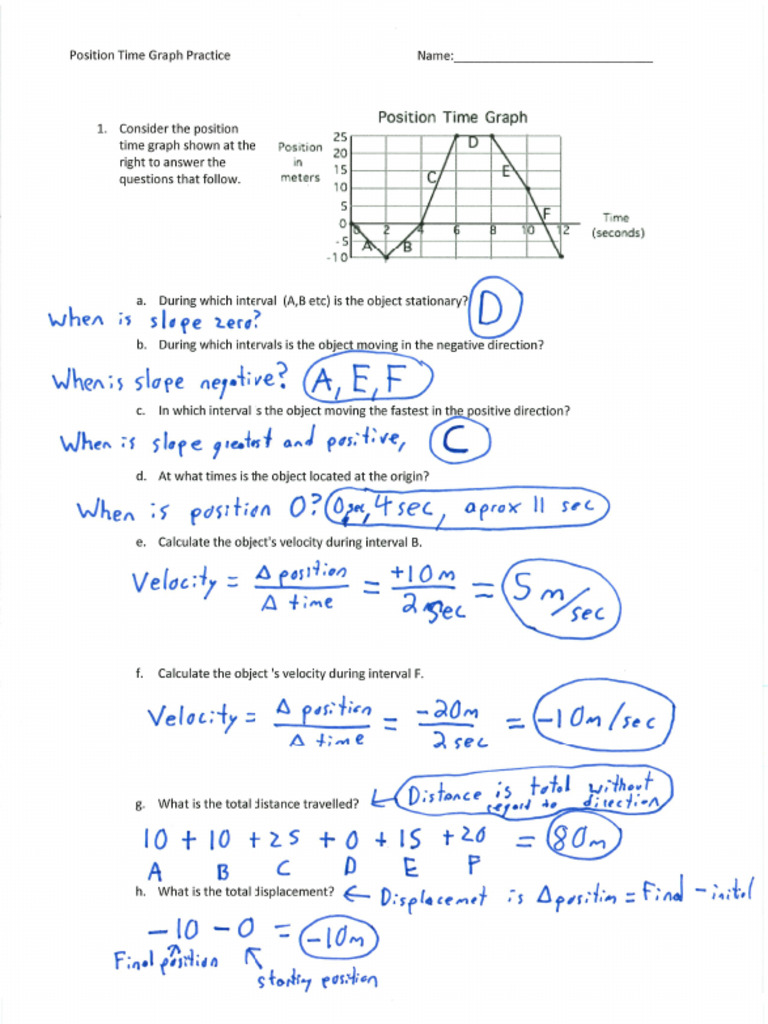 Position Time Graph Practice
Name:
1. Consider the position
time graph shown at the
right to answer the
questions that follow.
Position Time Graph
Position
in
meters
25
20
15
10
5
0
-5
-10
0 2 4 6 8 10 12
A B C D E F
Time
(seconds)
a. During which interval (A,B etc) is the object stationary? D
When is slope zero?
b. During which intervals is the object moving in the negative direction?
When is slope negative? A, E, F
c. In which interval s the object moving the fastest in the positive direction?
When is slope greatest and positive, C
d. At what times is the object located at the origin?
When is position 0? 0 sec, 4 sec, aprox 11 sec
e. Calculate the object's velocity during interval B.
Velocity = Δ position / Δ time = +10m / 2 sec = 5 m/sec
f. Calculate the object 's velocity during interval F.
Velocity = Δ position / Δ time = -20m / 2 sec = -10m/sec
g. What is the total distance travelled? ← Distance is total without
regard to direction
10 + 10 + 25 + 0 + 15 + 20 = 80m
A B C D E F
h. What is the total displacement? ← Displacemet is Δ position = Final - initial
-10 - 0 = -10m
Final position
starting position